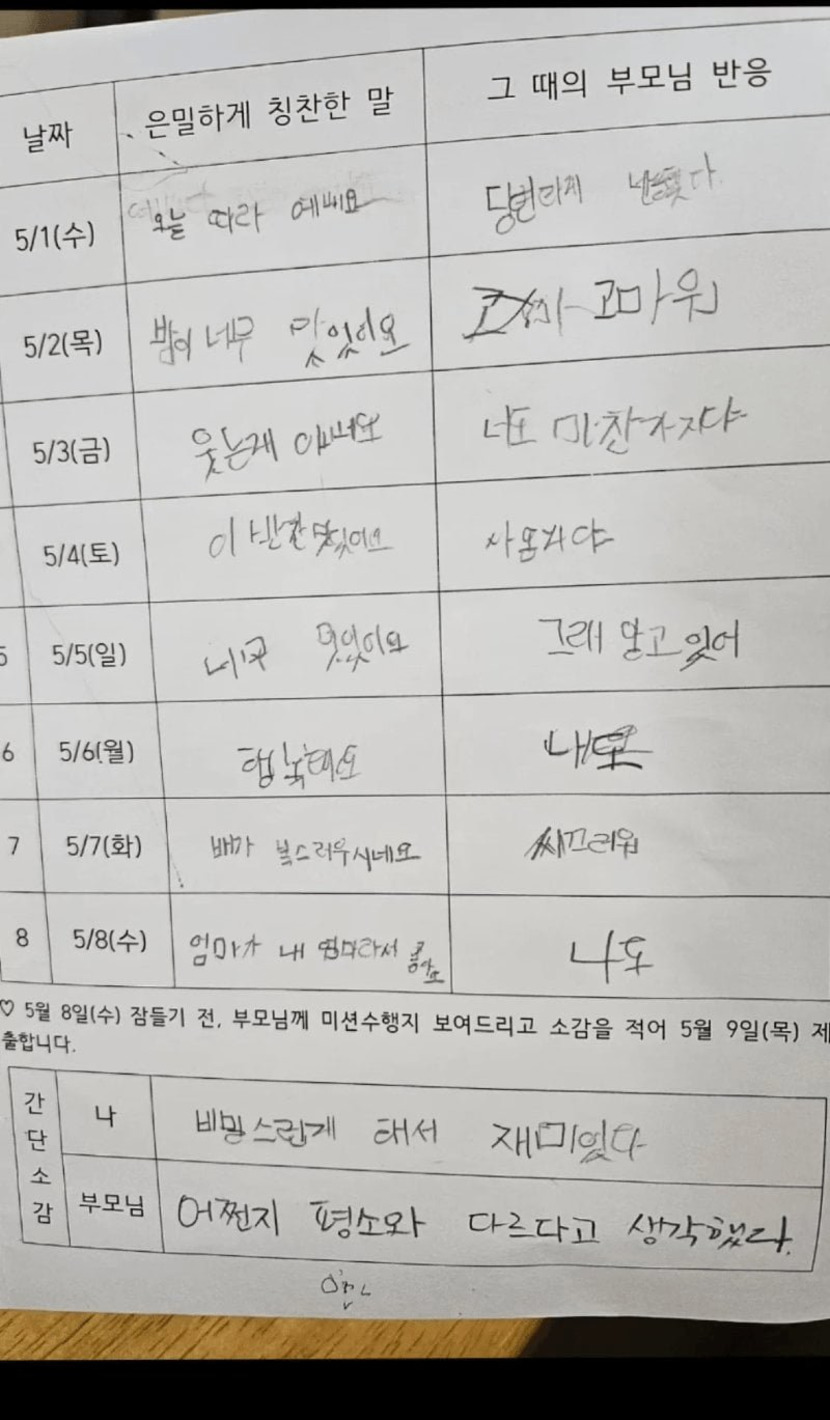 날짜 은밀하게 칭찬한 말 그 때의 부모님 반응
5/1(수) 오늘 따라 예뻐요 당연하게
5/2(목) 밥이 너무 맛있어요 고마워
5/3(금) 웃는게 너도 마찬가지다
5/4(토) 이 반찬 맛있어요
5 5/5(일) 너무 맛있어요 그래 알고 있어
6 5/6(월) 행복해요 내도
7 5/7(화) 배가 복스러우시네요 씨끄러워
8 5/8(수) 엄마가 내 엄마라서 좋아요 나도
♡ 5월 8일(수) 잠들기 전, 부모님께 미션수행지 보여드리고 소감을 적어 5월 9일(목) 제
출합니다.
간단소감
나 비밀스럽게 해서 재미있다
부모님 어쩐지 평소와 다르다고 생각했다.